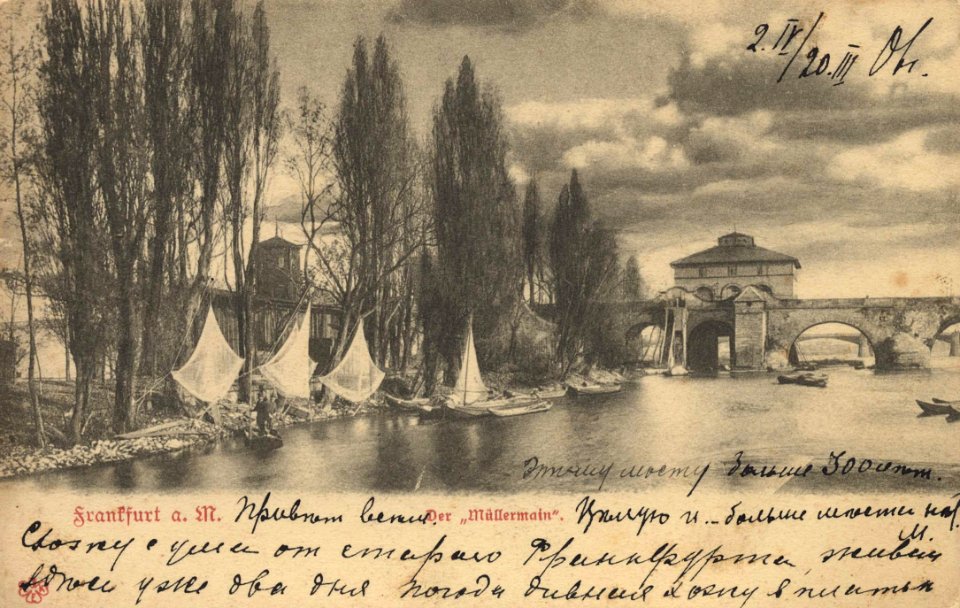 2.IV/20.III
Этому мосту больше 300 лет.
Frankfurt a. M. Der „Müllermain“.
Привет всем Целую и больше моста
Схожу с ума от старого Франкфурта, живём
здесь уже два дня погода дивная хожу в платье